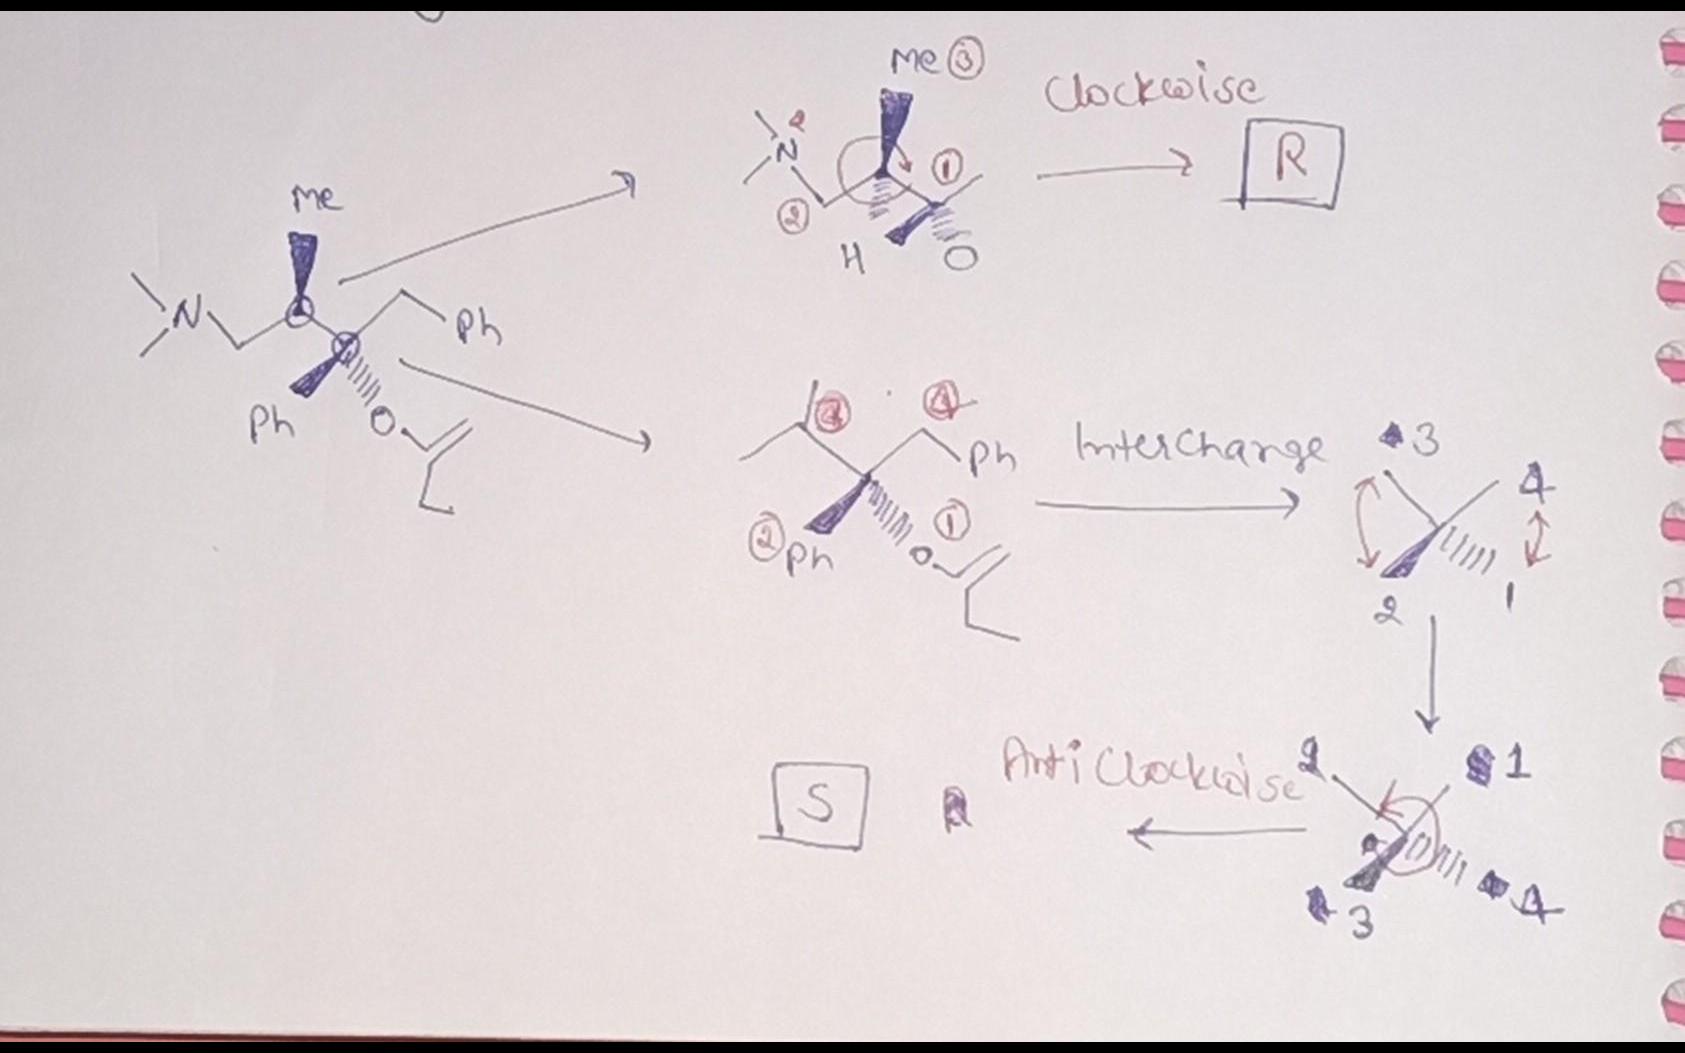 Me ③
Clockwise
2
N
①
R
②
H
O
Me
N
Ph
Ph
O
③
④
Ph
Interchange
3
4
②
Ph
①
O
2
1
Anti Clockwise
2
1
S
3
4